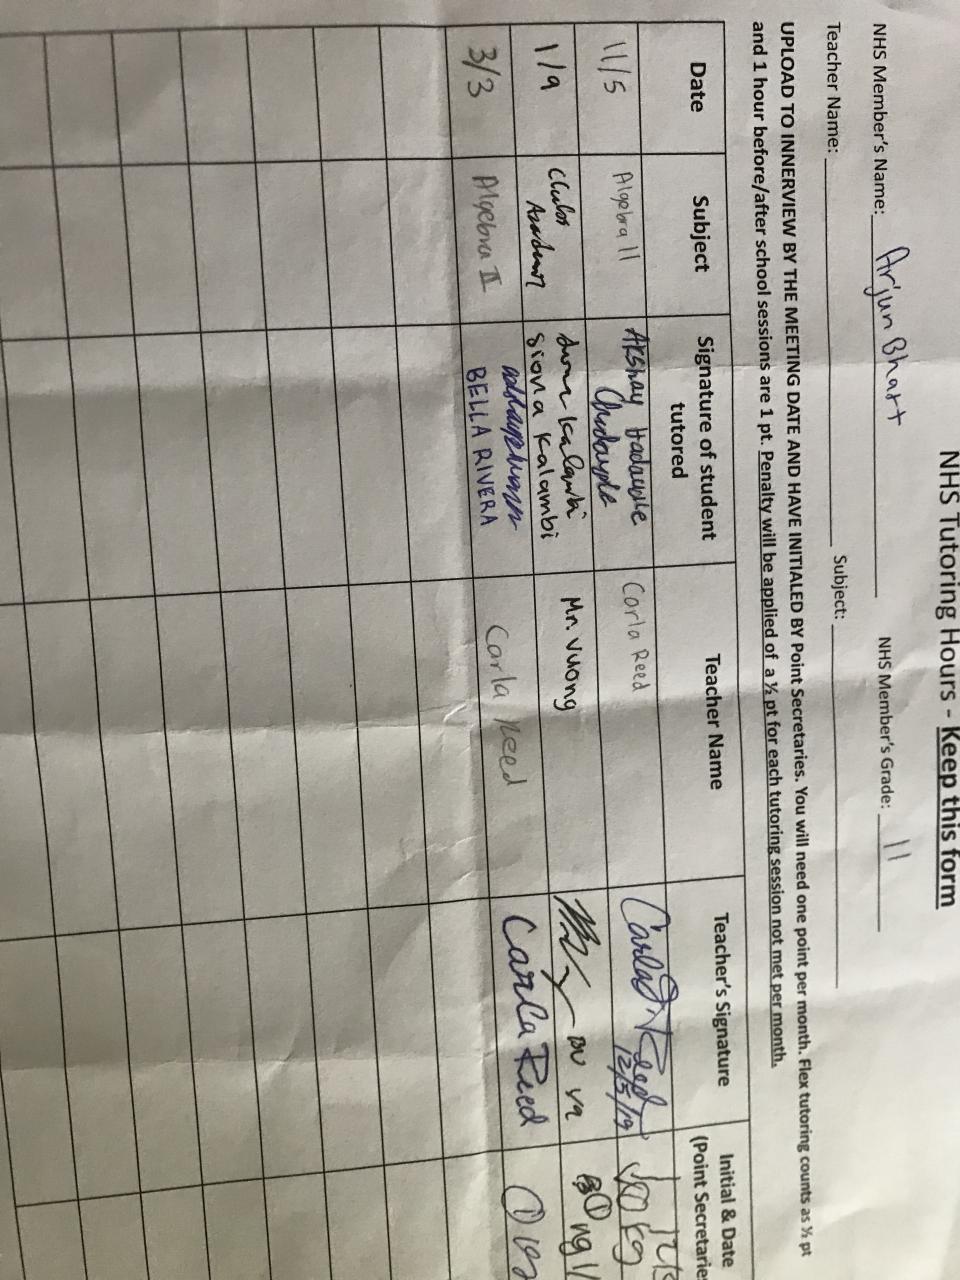 NHS Tutoring Hours - Keep this form
NHS Member's Name: Arjun Bhart NHS Member's Grade: 11
Teacher Name: Subject:
UPLOAD TO INNERVIEW BY THE MEETING DATE AND HAVE INITIALED BY Point Secretaries. You will need one point per month. Flex tutoring counts as ½ pt
and 1 hour before/after school sessions are 1 pt. Penalty will be applied of a ½ pt for each tutoring session not met per month.
Date Subject Signature of student tutored Teacher Name Teacher's Signature Initial & Date (Point Secretaries
11/5 Algebra II Akshay Carla Reed Carla Reed 12/5/19
1/9 Kalambi Mr. Vuong
Siona Kalambi
3/3 Algebra II BELLA RIVERA Carla Reed Carla Reed